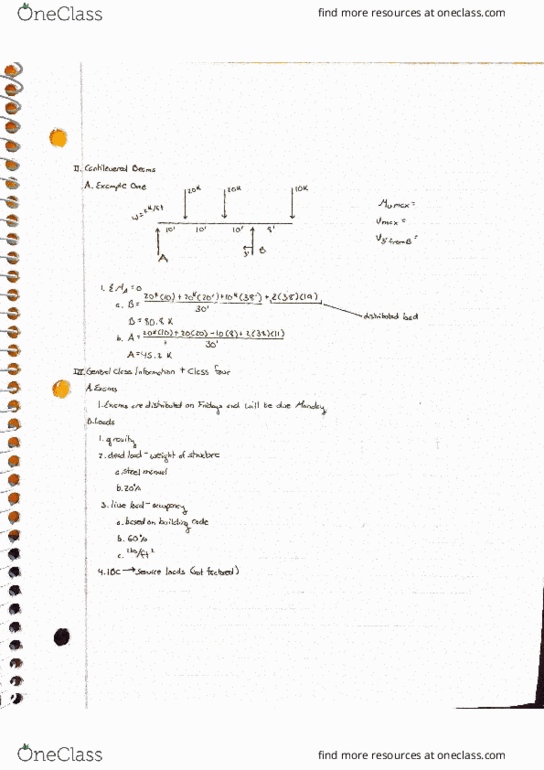 OneClass
find more resources at oneclass.com
II. Cantilevered Beams
A. Example One
20K 20K 10K
w=2K/ft
10' 10' 10' 8'
A
3' B
Mu max =
Vmax =
V3' from B =
1. ΣMA=0
a. B= 20K(10)+20K(20')+10K(38')+2(38)(19)
30'
distributed load
B=80.8 K
b. A= 20K(10)+20(20)-10(8)+2(38)(11)
30'
A=45.2 K
III. General Class Information + Class Four
A. Exams
1. Exams are distributed on Fridays and will be due Monday
B. Loads
1. gravity
2. dead load - weight of structure
a. steel manual
b. 20%
3. live load - occupancy
a. based on building code
b. 60%
c. lb/ft²
4. IBC → service loads (not factored)
OneClass
find more resources at oneclass.com